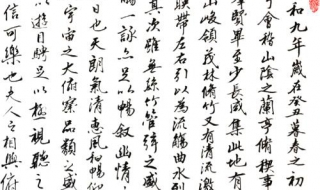 和九年歲在癸丑暮春之初
于會稽山陰之蘭亭脩禊事
羣賢畢至少長咸集此地有
山峻領茂林脩竹又有清流激
暎帶左右引以為流觴曲水列
其次雖無絲竹管絃之盛
觴一詠亦足以暢敘幽情
日也天朗氣清惠風和暢仰
宇宙之大俯察品類之盛
以遊目騁懷足以極視聽之
信可樂也夫人之相與俯